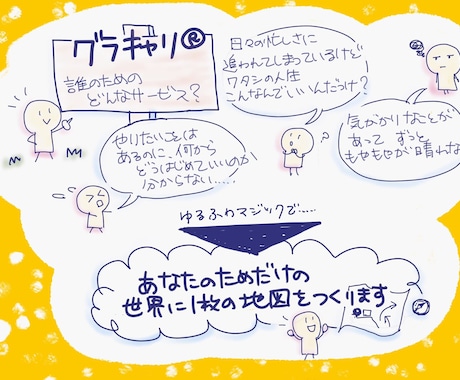 グラキャリ®
誰のための
どんなサービス?
日々の忙しさに
追われてしまっているけど
ワタシの人生
こんなんでいいんだっけ?
気がかりなことが
あって ずっと
もやもやが晴れな
やりたいことは
あるのに、何から
どうはじめていいのか
分からない……
ゆるふわマジックで……
あなたのためだけの
世界に1枚の地図をつくります